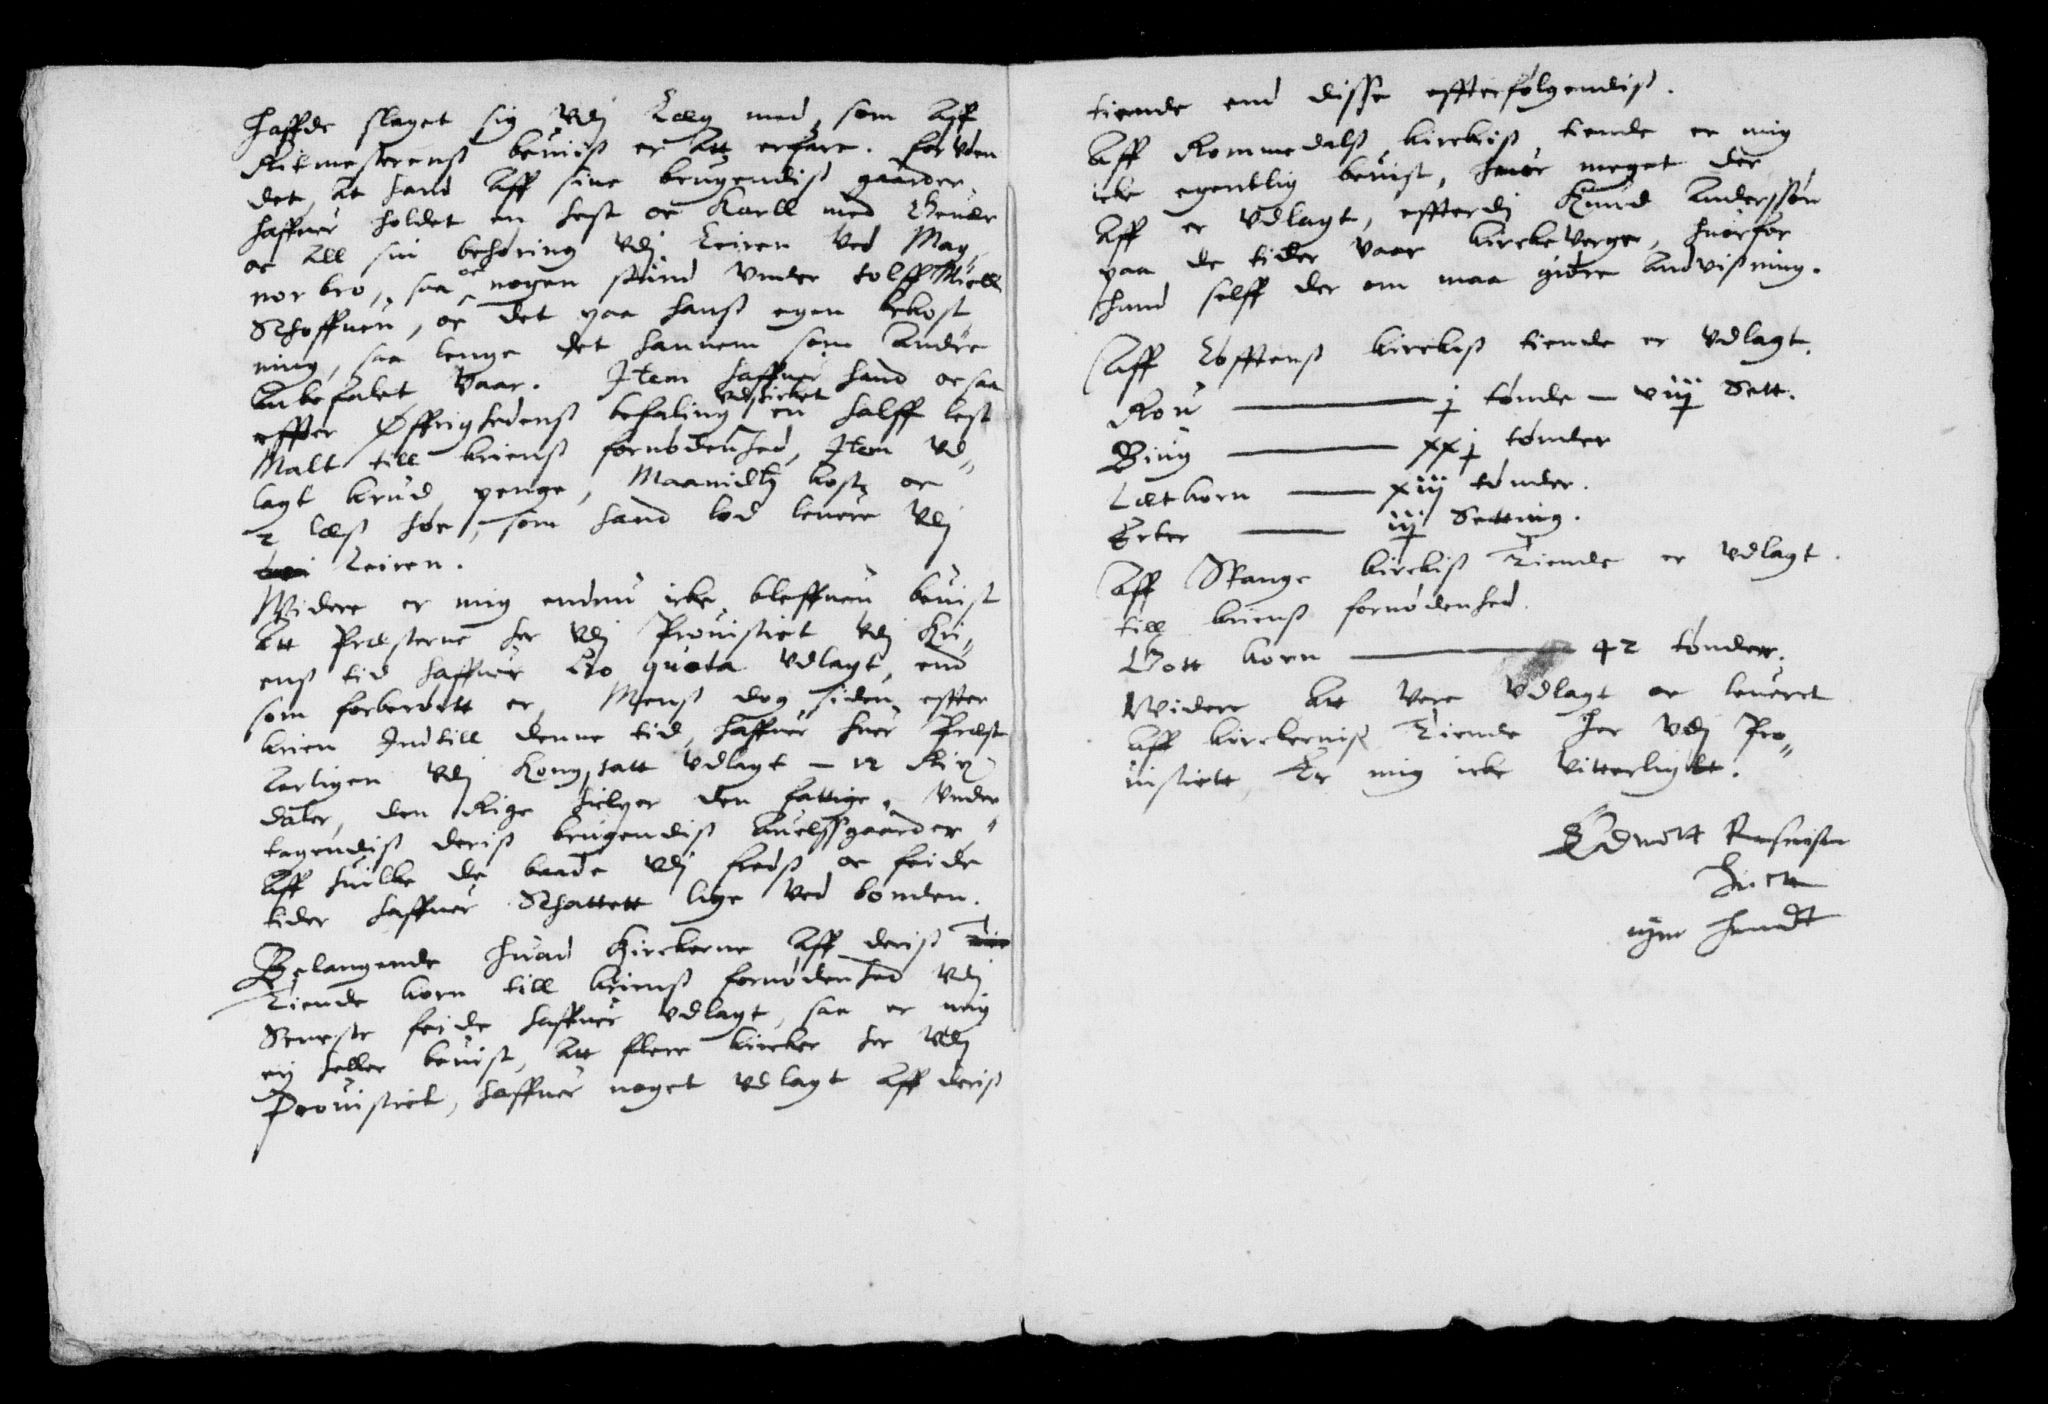 haffde slaget sig vdj Læg med, som aff
Ritmesterens beuiis er att erfare. foruden
det, at hand aff sine brugendis gaarder,
haffuer holdet en hest oc karll med Geuær
oc all sin behøring vdj Leiren ved Mag„
nor bro, saa oc nogen stund vnder tolff Miell
Schoffuen, oc det paa hans egen bekost„
ning, saa lenge det hannem som andre
anbefalet vaar. Item haffuer hand oc saa
effter Øffrighedens befaling vdstricket en halff lest
Malt till kriens fornødenhed, Item vd„
lagt krud penge, Maanidtz kost, oc
2 læs høe, som hand lod leuere vdj
Leiren.
Widere er mig endnu icke bleffuen beuist
att Præsterne her vdj Prouistiet vdj kri„
ens tid haffuer quota vdlagt, end
som forberørtt er, Mens dog siden effter
krien Indtill denne tid, haffuer huer Præst
aarligen vdj Kong, skatt vdlagt – 12 Rix
daler, den Rige hielper den fattige, vnder
tagendis deris brugendis auelssgaarder,
aff huilke de baade vdj freds oc feide
tider haffuer Schattett lige ved bonden.
Belangende huad Kirckerne aff deris
Tiende korn till kriens fornødenhed vdj
Seneste feide haffuer vdlagt, saa er mig
ej heller beuist, att flere kircker her vdj
Prouistiet, haffuer noget vdlagt aff deris
tiende end disse effterfølgendis.
Aff Rommedals kirckis tiende er mig
icke egentlig beuist, huor meget der
aff er vdlagt, effterdj Knud Anderssøn
paa de tider vaar kirckeverge, huorfor
hand selff der om maa giøre anduisning.
Aff Løfftens kirckis tiende er vdlagt.
Rou — j tønde – viij Sett.
Biug — xxj tønder
Lætkorn — xiij tønder.
Erter — iij Setting.
Aff Stange kirckis Tiende er vdlagt
till kriens fornødenhed.
Gott korn — 42 tønder.
Widere att vere vdlagt oc leueret
aff kirckernis Tiende her vdj Pro„
uistiett, Er mig icke vitterligtt.